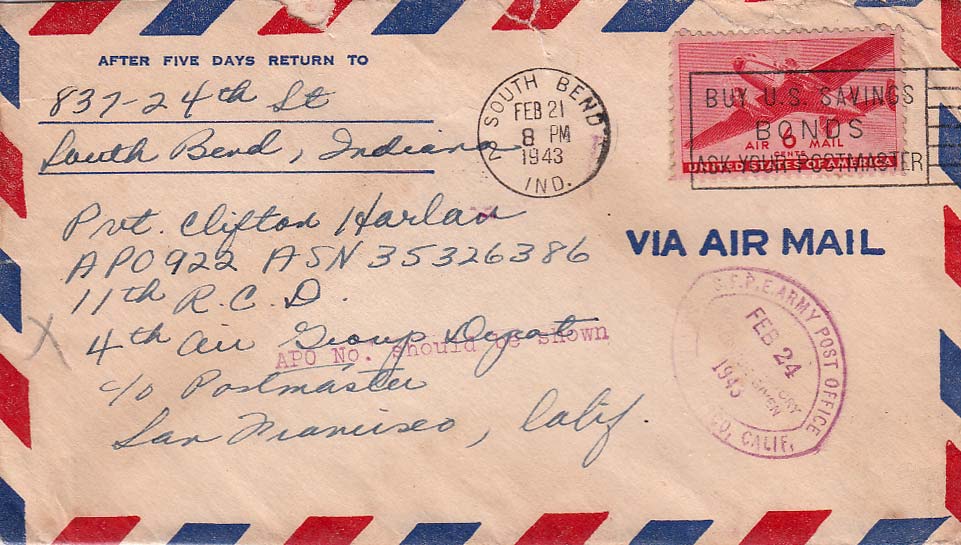 AFTER FIVE DAYS RETURN TO
837-24th St
South Bend, Indiana
2 SOUTH BEND
FEB 21
8 PM
1943
IND.
BUY U.S. SAVINGS
BONDS
ASK YOUR POSTMASTER
6
CENTS
AIR MAIL
UNITED STATES OF AMERICA
Pvt. Clifton Harlan
APO 922 ASN 35326386
11th R.C.D.
4th Air Group Depot
APO No. should be shown
c/o Postmaster
San Francisco, Calif.
VIA AIR MAIL
S.F.P.E. ARMY POST OFFICE
FEB 24
1943
CALIF.
X